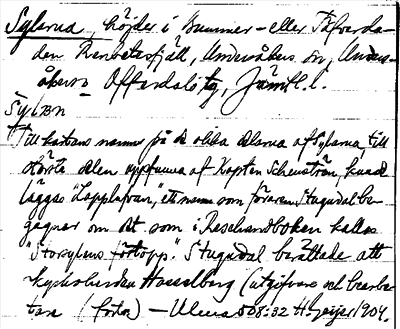 Sylarna, höjder i Hummer- eller Tåfverda-
den Renbetesfjäll, Undersåkers sn, Under-
åkers Offerdals tg, Jämtl. l.
SYLEN
Till kartans namn på de olika delarna af Sylarna, till
största delen uppfunna af Kapten Schenström, kunde
läggas "Lapplefvan", ett namn som föraren Stugudal be-
gagnar om det som i Resehandboken kallas
"Storsylens förtopp". Stugudal berättade att
kyrkoherden Hasselberg (utgifvare och bearbe-
tare (        ) — Ulma 508:32 H. Geijer 1904.